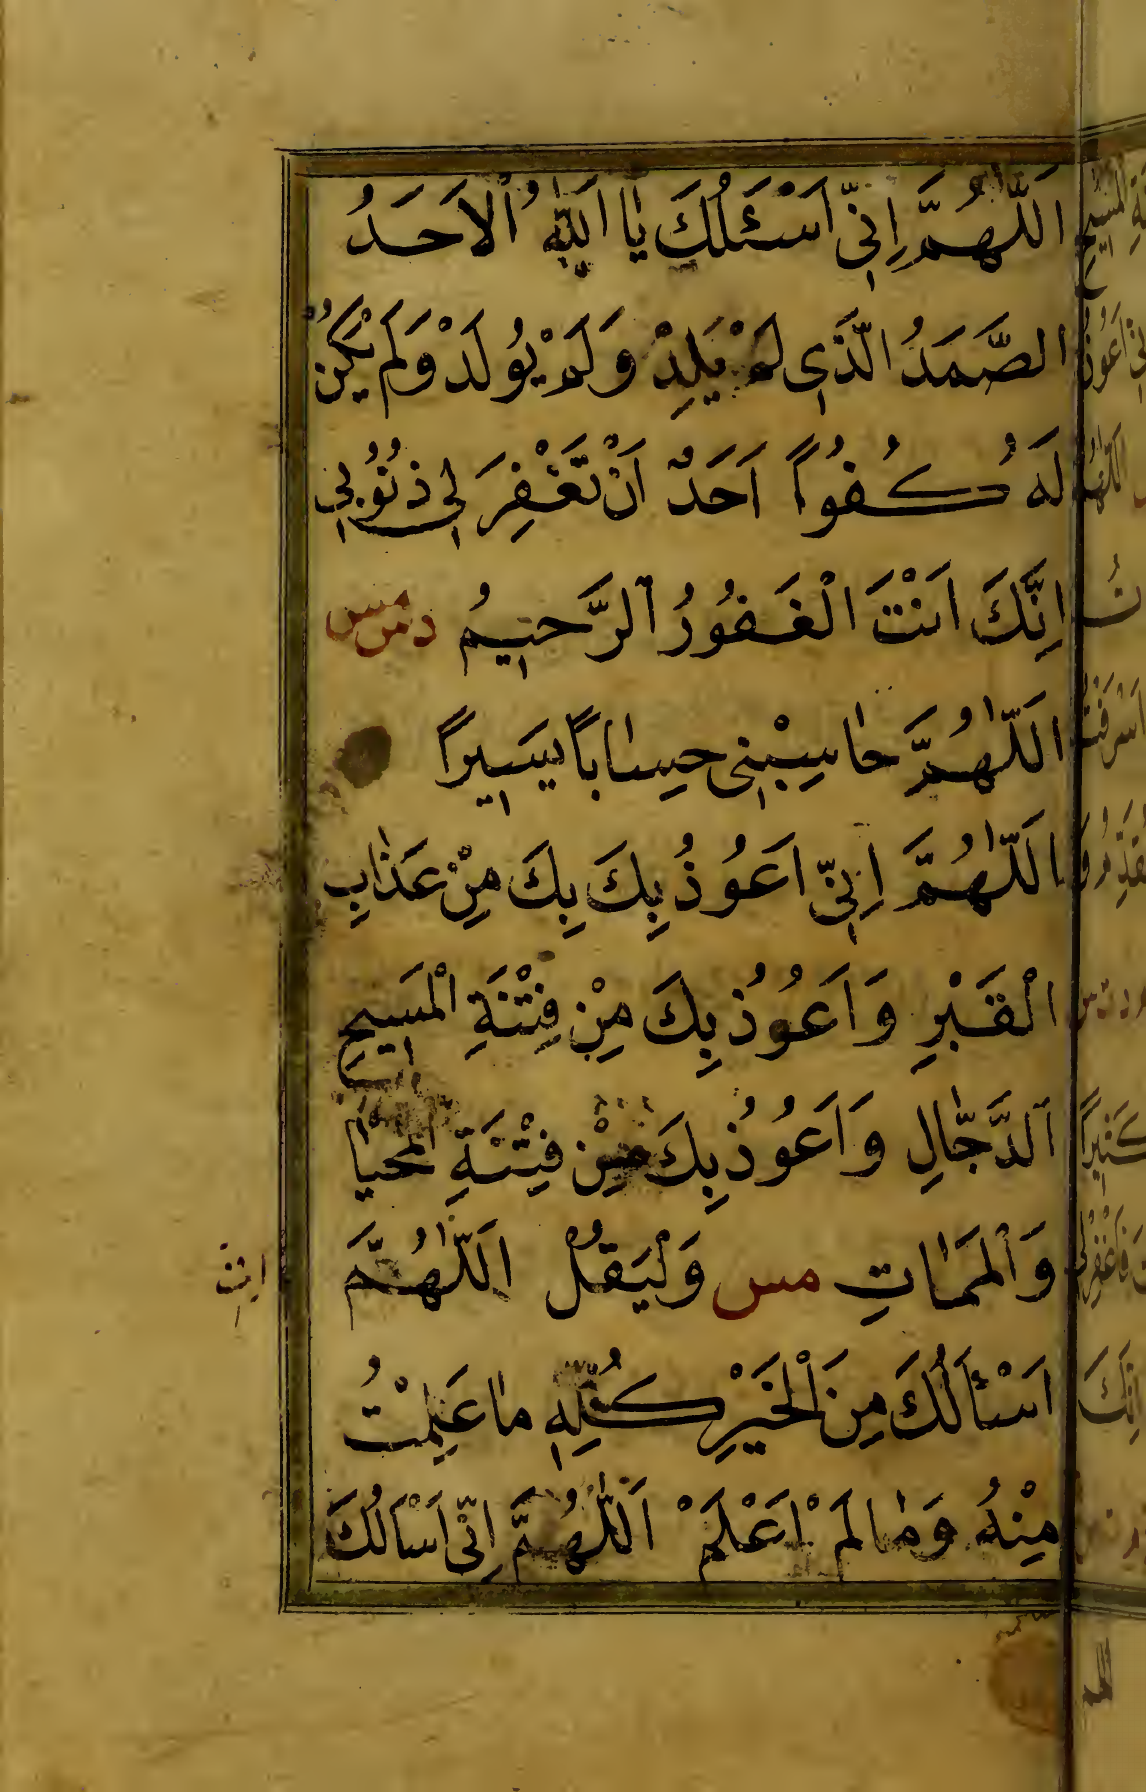 اَللّٰهُمَّ اِنِّىٓ اَسْئَلُكَ يٰا اَللّٰهُ الْاَحَدُ
الصَّمَدُ الَّذِى لَمْ يَلِدْ وَلَمْ يُولَدْ وَلَمْ يَكُنْ
لَهُ كُفُوًا اَحَدٌ اَنْ تَغْفِرَ لِى ذُنُوبِى
اِنَّكَ اَنْتَ الْغَفُورُ الرَّحِيمُ د س مس
اللّٰهُمَّ حٰاسِبْنِى حِسٰابًا يَسِيرًا
اللّٰهُمَّ اِنِّى اَعُوذُ بِكَ بِكَ مِنْ عَذٰابِ
الْقَبْرِ وَاَعُوذُ بِكَ مِنْ فِتْنَةِ الْمَسِيحِ
الدَّجّٰالِ وَاَعُوذُ بِكَ مِنْ فِتْنَةِ الْمَحْيٰا
وَالْمَمٰاتِ مس وَلْيَقُلْ اَللّٰهُمَّ
اَسْئَالُكَ مِنَ الْخَيْرِ كُلِّهِ مٰا عَلِمْتُ
مِنْهُ وَمٰا لَمْ اَعْلَمْ اَللّٰهُمَّ اِنِّى اَسْاَلُكَ